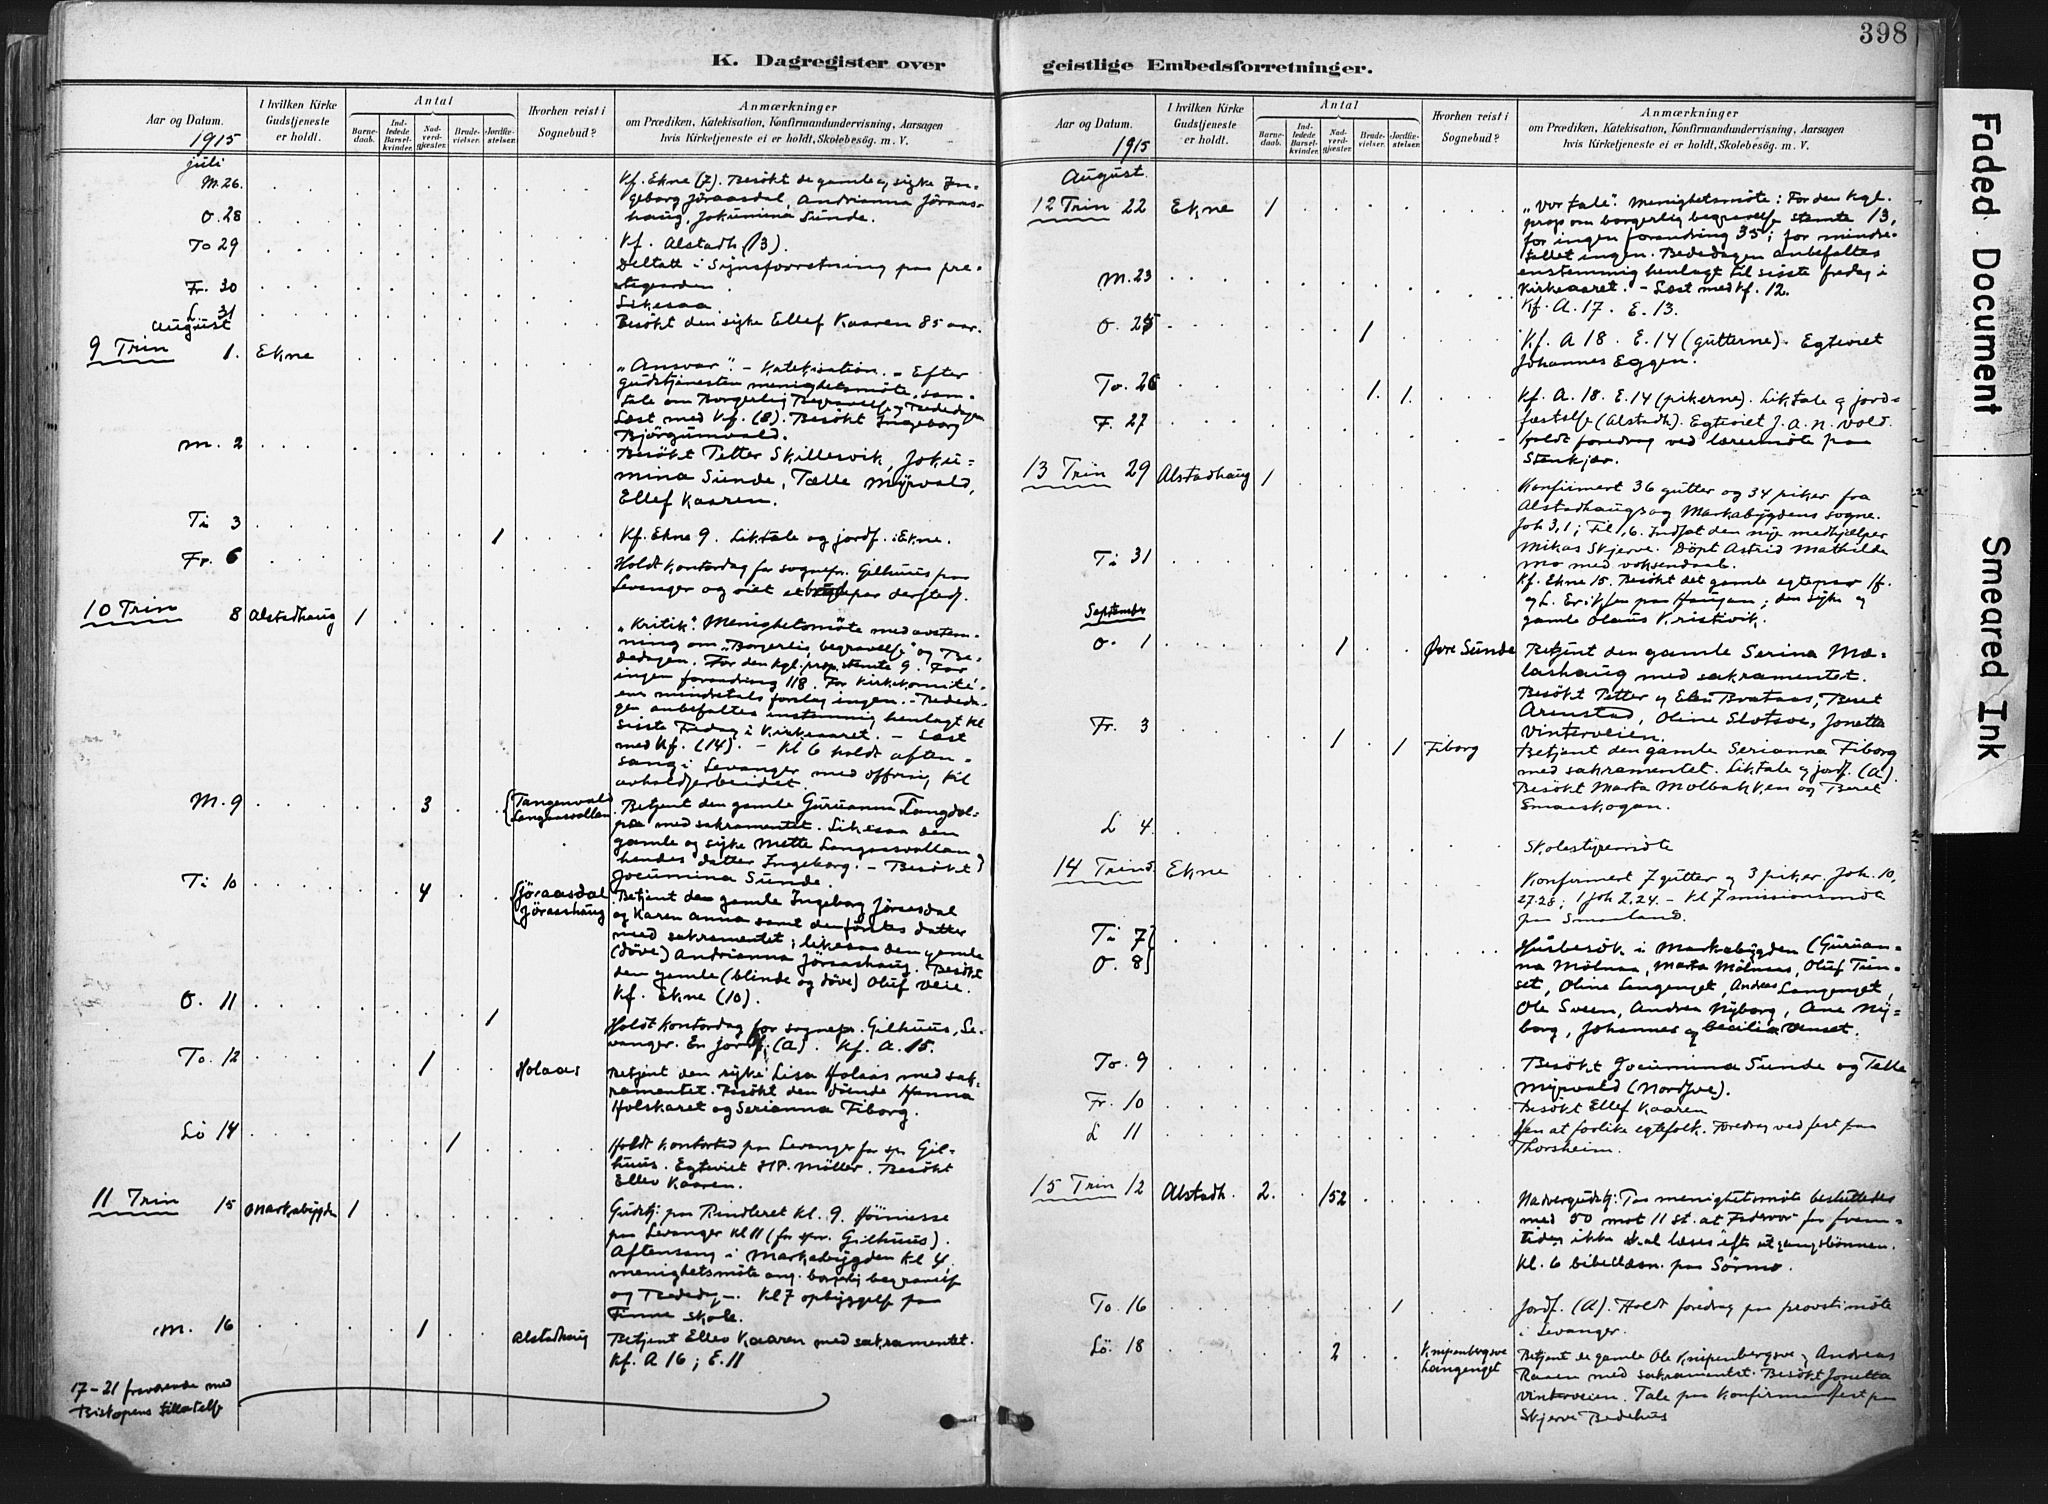 398
K. Dagregister over
geistlige Embedsforretninger.
Aar og Datum.
I hvilken Kirke Gudstjeneste er holdt.
Antal
Barne-daab.
Ind-ledede Barsel-kvinder.
Nad-verd-gjæster.
Brude-vielser.
Jordfæ-stelser.
Hvorhen reist i Sognebud?
Anmærkninger
om Prædiken, Katekisation, Konfirmandundervisning, Aarsagen
hvis Kirketjeneste ei er holdt, Skolebesøg. m. V.
1915
juli
M. 26.
Kf. Ekne (7). Besökt de gamle og syke In-
geborg Jöraasdal, Andrianna Jöraas-
O. 28
haug, Jokumina Sunde.
To 29
Kf. Alstadh. (13).
Deltatt i Synsforretning paa pre-
Fr. 30
stegaarden.
Likesaa
L. 31
Besökt den syke Ellef Kaaren 85 aar.
August
9 Trin 1. Ekne
"Ansvar". - Katekisation. - Efter
gudstjenesten menighetsmöte, sam-
tale om Borgerlig Begravelse og Bededagen
Læst med Kf. (8). Besökt Ingeborg
Björgumvald.
M. 2
Besökt Petter Skillesvik, Joku-
mina Sunde, Tælle Myrvald,
Ellef Kaaren.
Ti 3 1
Kf. Ekne 9. Liktale og jordf. i Ekne.
Fr. 6
Holdt kontordag for sognepr. Gilhuus paa
Levanger og viet et par dersteds.
10 Trin 8 Alstadhaug 1
"Kritik". Menighetsmöte med avstem-
ning om "Borgerlig begravelse" og Be-
dedagen. For den kgl. prop. stemte 9. For
ingen forandring 118. For Kirkekomité-
ens mindretals forslag ingen. - Bededa-
gen anbefaltes enstemmig henlagt til
siste Fredag i Kirkeaaret. - Læst
med Kf. (14). - Kl 6 holdt aften-
sang i Levanger med offring til
avholdsarbeidet.
M. 9 3 Tangenvald Langaasvollan
Betjent den gamle Guruanna Langdal-
med sakramentet. Likesaa den
gamle og syke Mette Langaasvollan
hendes datter Ingeborg. - Besökt
Jocumina Sunde.
Ti 10 4 Jöraasdal Jöraashaug
Betjent den gamle Ingeborg Jöraasdal
og Karen Anna samt denförstes datter
med sakramentet; likesaa den gamle
(döve) Andrianna Jöraashaug. Besökt
den gamle (blinde og döve) Oluf Veie.
O. 11 1
Kf. Ekne (10).
Holdt kontordag for sognepr. Gilhuus, Le-
vanger. En jordf. (A). Kf. A. 15.
To. 12 1 Holaas
Betjent den syke Lisa Holaas med sak-
ramentet. Besökt den döende Hanna
Holskaret og Serianna Fiborg.
Lö 14 1
Holdt kontortid paa Levanger for spr. Gil-
huus. Egteviet Möller. Besökt
Ellev Kaaren.
11 Trin 15 Markabygden 1
Gudstj. paa Rindleret kl. 9. Höimesse
paa Levanger kl 11 (for spr. Gilhuus).
Aftensang i Markabygden kl 4.
menighetsmöte ang. borgerlig begravelse
og Bededag. Kl 7 opbyggelse paa
Finne skole.
M. 16 1 Alstadhaug
Betjent Ellev Kaaren med sakramentet.
Kf. A 16; E. 11
17-21 fraværende med
Biskopens tillatelse
Aar og Datum.
I hvilken Kirke Gudstjeneste er holdt.
Antal
Barne-daab.
Ind-ledede Barsel-kvinder.
Nad-verd-gjæster.
Brude-vielser.
Jordfæ-stelser.
Hvorhen reist i Sognebud?
Anmærkninger
om Prædiken, Katekisation, Konfirmandundervisning, Aarsagen
hvis Kirketjeneste ei er holdt, Skolebesøg. m. V.
1915
August.
12 Trin 22 Ekne 1
"Vor tale". Menighetsmöte: For den kgl.
prop om borgerlig begravelse stemte 13,
for ingen forandring 35; for mindre-
tallet ingen. Bededagen anbefaltes
enstemmig henlagt til siste fredag i
Kirkeaaret. - Læst med Kf. 12.
M. 23
Kf. A. 17. E. 13.
O. 25 1
Kf. A 18. E. 14 (gutterne). Egteviet
Johannes Eggen.
To. 26 1. 1.
Kf. A. 18. E. 14 (pikerne). Liktale og jord-
fæstelse (Alstadh). Egteviet J. A. N. Vold.
F. 27
Holdt foredrag ved læremöte paa
Stenkjær.
13 Trin 29 Alstadhaug 1
Konfirmert 36 gutter og 34 piker fra
Alstadhaugs og Markabygdens sogne.
Joh 3,1; Fil 1,6. Indsat den nye medhjælper
Mikas Skjerve. Döpt Astrid Mathilde
Mo med voksendaab.
Ti 31
Kf. Ekne 15. Besökt det gamle egtepar
og L. Eriksen paa Haugan; den syke og
gamle Olaus Kristivik.
September
O. 1 1 Övre Sunde
Betjent den gamle Serina Mæ-
lashaug med sakramentet.
Besökt Petter og Brataas, Beret
Arenstad, Oline Slotsve, Jonetta
Vinterveien.
Fr. 3 1 1 Fiborg
Betjent den gamle Serianna Fiborg
med sakramentet. Liktale og jordf. (A).
Besökt Marta Molbakken og Beret
Smaaskogan.
L 4.
Skolestyremöte
14 Trin 5. Ekne
Konfirmert 7 gutter og 3 piker. Joh. 10,
27-28; 1 Joh 2,24. - Kl 7 missionsmöte
paa Smaaland.
Ti 7
O. 8
Husbesök i Markabygden (Guruan-
na Mölnaa, Marta Mölnaas, Oluf Tun-
set, Oline Langenget, Andreas Langenget,
Ole Sveen, Andrea Nyborg, Ane Ny-
borg, Johannes og Cecilia Venset.
To. 9
Besökt Jocumina Sunde og Tælle
Myrvald (Nordsve).
Fr. 10
Besökt Ellef Kaaren
L 11
at forlike egtefolk. Foredrag ved fest paa
Thorsheim.
15 Trin 12 Alstadh. 2. 152
Nadvergudstj: Paa menighetsmöte besluttedes
med 50 mot 11 st. at Fadervor for frem-
tiden ikke skal læses efter utgangsbönnen.
Kl. 6 bibellæsn. paa Sörmo.
To. 16 1
Jordf. (A). Holdt foredrag paa provstimöte
i Levanger.
Lö. 18 2 Knipenbergsve Langenget
Betjent de gamle Ole Knipenbergsve og Andreas
Raaen med sakramentet. Besökt Jonetta
Vinterveien. Tale paa Konfirmandfest paa
Skjerve Bedehus
Faded Document
Smeared Ink